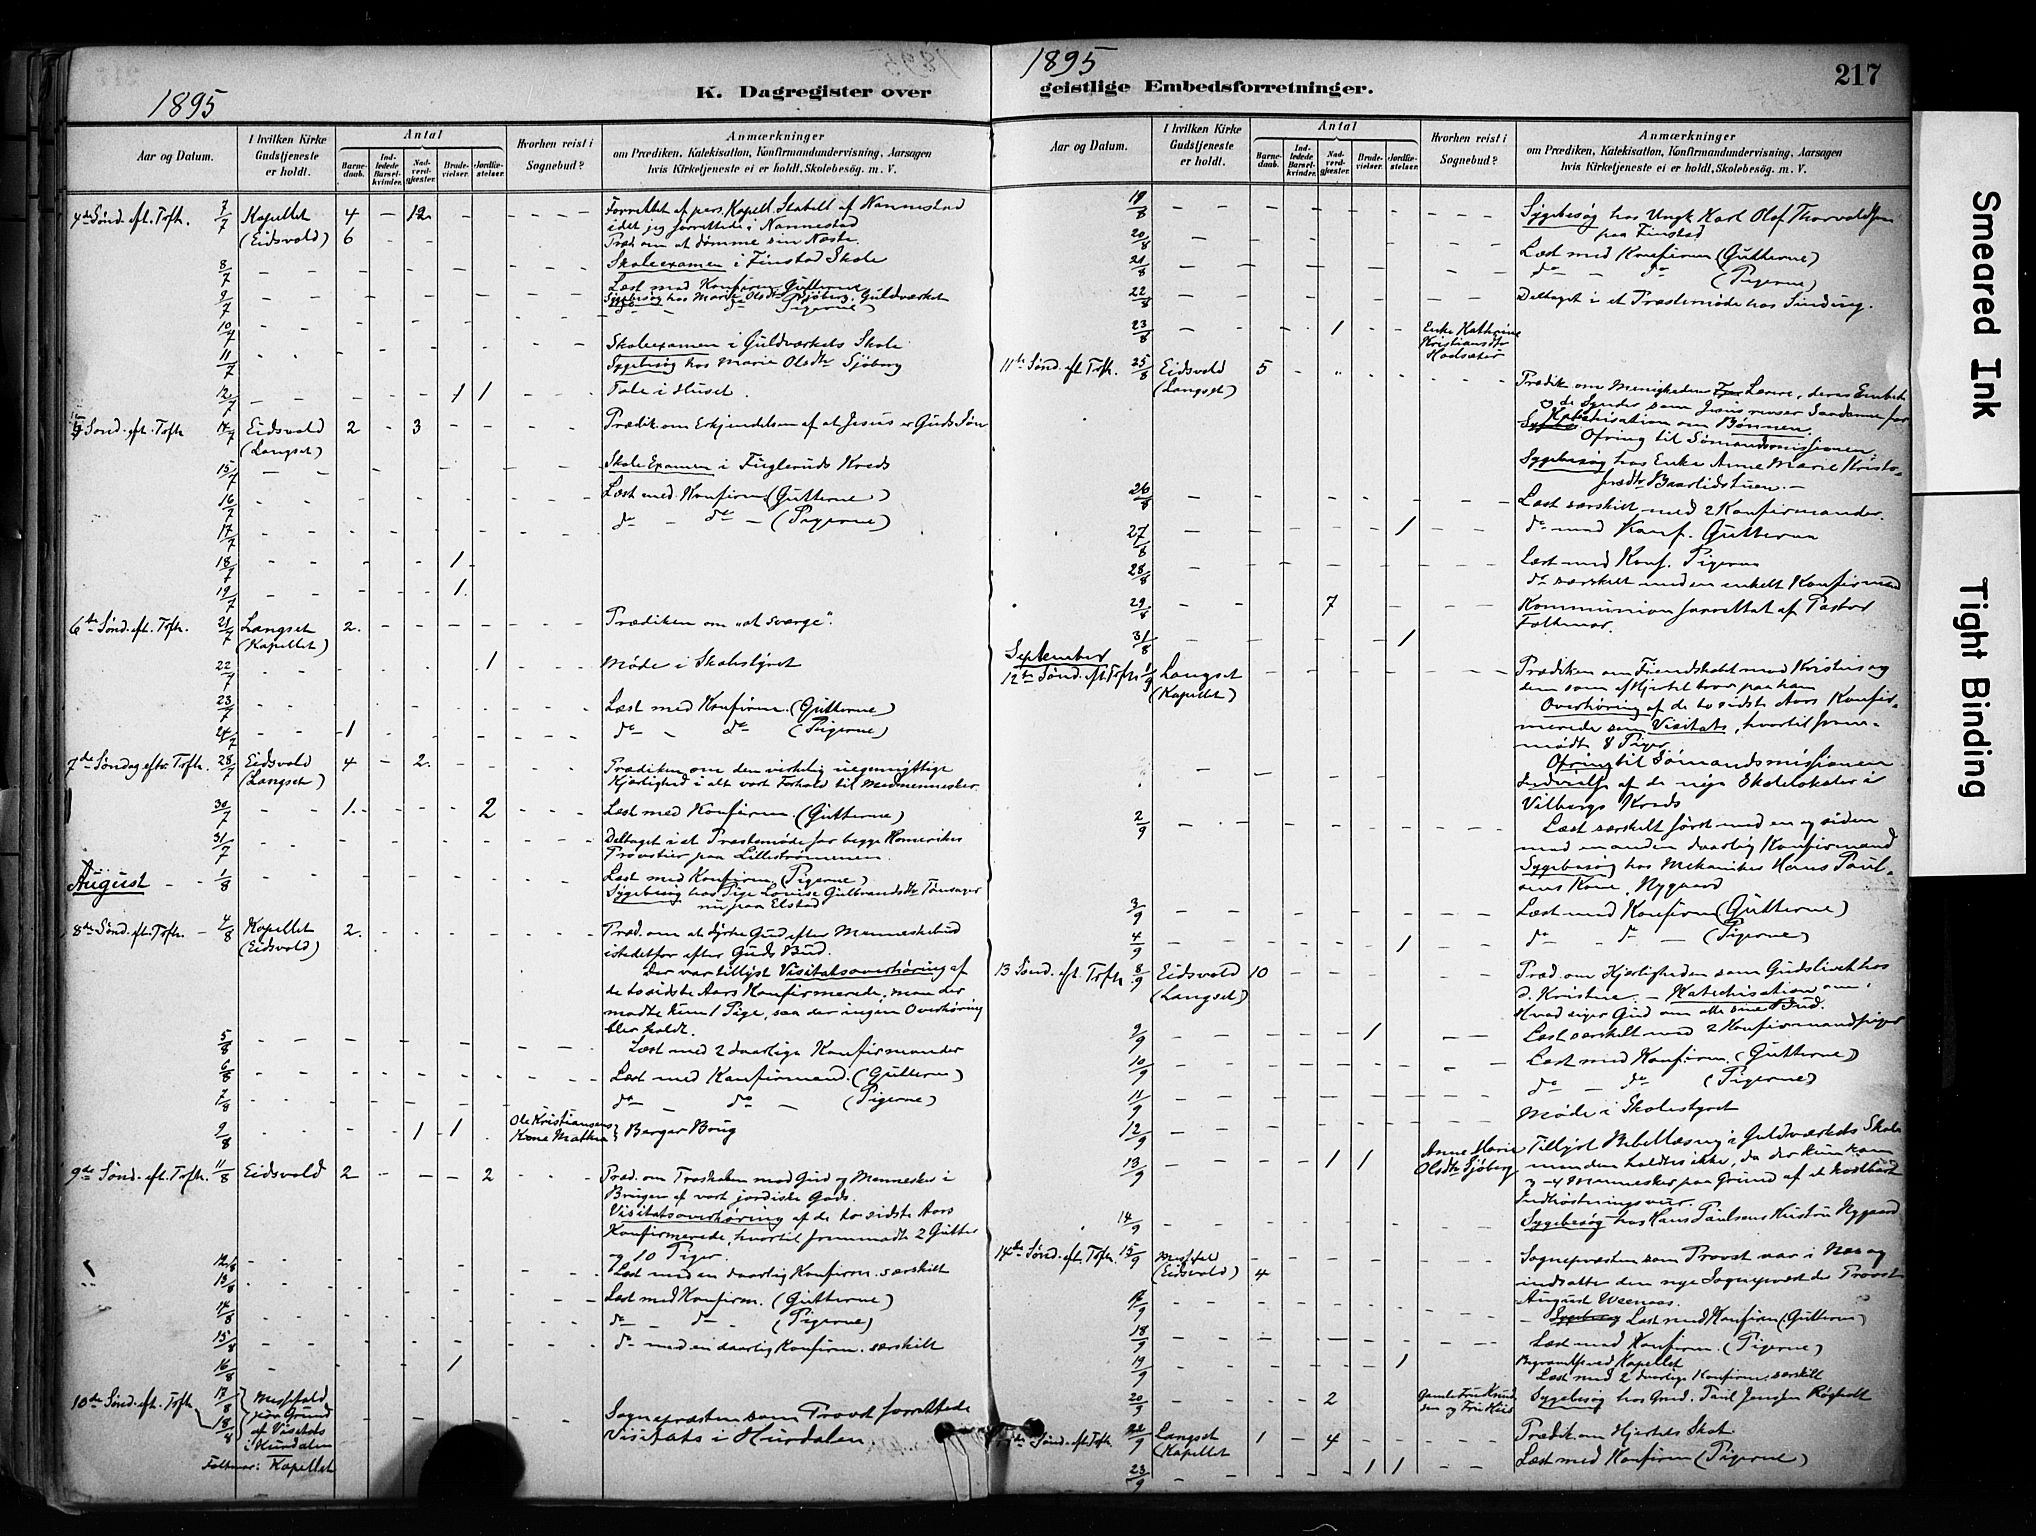 1895
K. Dagregister over
Aar og Datum.
I hvilken Kirke Gudstjeneste er holdt.
Antal
Barne-daab.
Ind-ledede Barsel-kvinder.
Nad-verd-gjæster.
Brude-vielser.
Jordfæ-stelser.
Hvorhen reist i Sognebud?
Anmærkninger
om Prædiken, Katekisation, Konfirmandundervisning, Aarsagen
hvis Kirketjeneste ei er holdt, Skolebesøg. m. V.
4de Sønd. eft. Trefh. 7/7 Kapellet 4 - 12 - - - - - Forrettet af pers. Kapell. Stabell af Nannestad
(Eidsvold) 6 - - idet jeg forrettede i Nannestad
Præd. om at dømme sin Næste.
8/7 - - Skoleexamen i Finstad Skole
Læst med Konfirm. Gutterne
9/7 - - Sygebesøg hos Marie Olsdtr Sjøberg, Guldværket
do do Pigerne)
10/7 - - Skoleexamen i Guldværkets Skole
11/7 Sygebesøg hos Marie Olsdtr Sjøberg
12/7 - - 1 1 Tale i Huset.
Sønd. eft. Trefh 14/7 Eidsvold 2 - 3 - - Prædik. om Erkjendelsen af at Jesus er Guds Søn
(Langset)
15/7 - - Skole Examen i Fugleruds Kreds
16/7 Læst med Konfirm (Gutterne)
17/7 do - do - (Pigerne)
18/7 - - 1
19/7 - - 1
6te Sønd. eft. Trefh. 21/7 Langset 2. - - Prædiken om "at sværge".
(Kapellet)
22/7 - - 1 Møde i Skolestyret
23/7 - - Læst med Konfirm. (Gutterne)
24/7 - - 1 do - do (Pigerne)
7de Søndag efter Trefh. 28/7 Eidsvold 4 - 2. - - Prædiken om den virkelig uegennyttige
(Langset) Kjærlighed i alt vort Forhold til Medmennesker
30/7 - - 1. - - 2 Læst med Konfirm. (Gutterne)
31/7 - - Deltaget i et Præstemøde for begge Romerikes
Provstier paa Lillestrømmen.
August - - 1/8 Læst med Konfirm. (Pigerne)
Sygebesøg hos Pige Lovise Gulbrandsdtr Tønsager
nu paa Elstad
8de Sønd. eft. Trefh. - 4/8 Kapellet 2. Præd. om at dyrke Gud efter Menneskebud
(Eidsvold) istedetfor efter Guds Bud.
Der var tillyst Visitatsoverhøring af
de to sidste Aars Konfirmerede, men der
mødte kun 1 Pige, saa der ingen Overhøring
blev holdt.
5/8 - - Læst med 2 daarlige Konfirmander
6/8 - - Læst med Konfirmand. (Gutterne)
7/8 do - do - (Pigerne)
9/8 - - 1 1 Ole Kristiansens
Kone Mathea } Berger Brug
9de Sønd. eft. Trefh. 11/8 Eidsvold 2 - - - 2 Præd. om Troskaben mod Gud og Mennesker i
Brugen af vort jordiske Gods.
Visitatsoverhøring af de to sidste Aars
Konfirmerede, hvortil fremmødte 2 Gutter
og 10 Piger.
12/8 Læst med en daarlig Konfirm. særskilt
13/8 Læst med Konfirm. (Gutterne)
14/8 do - do - (Pigerne)
15/8 do med en daarlig Konfirm. særskilt
16/8 - - 1
10de Sønd. eft. Trefh 17/8 18/8 Messefald
paa Grund
af Visitats
i Hurdalen
Sognepræsten som Provst forrettede
Visitats i Hurdalen
Foltmar: Kapellet
1895
geistlige Embedsforretninger.
217
Aar og Datum.
I hvilken Kirke Gudstjeneste er holdt.
Antal
Barne-daab.
Ind-ledede Barsel-kvinder.
Nad-verd-gjæster.
Brude-vielser.
Jordfæ-stelser.
Hvorhen reist i Sognebud?
Anmærkninger
om Prædiken, Katekisation, Konfirmandundervisning, Aarsagen
hvis Kirketjeneste ei er holdt, Skolebesøg. m. V.
19/8 Sygebesøg hos Ungk Karl Olof Thorvaldsen
paa Finstad
20/8 - - Læst med Konfirm (Gutterne)
21/8 do - do (Pigerne)
22/8 - - Deltaget i et Præstemøde hos Sinding.
23/8 - - 1 Enke Kathrine
Kristiansdtr
Hodsæter
11te Sønd. eft. Trefh. 25/8 Eidsvold 5 Prædik. om Menighedens Lærere, deres Embede
(Langset) og de Synder som Jesus revser Saadanne for
Katekisation om Bønnen.
Ofring til Sømandsmissionen.
Sygebesøg hos Enke Anne Marie Kristo-
fersdtr Baarlidstuen. -
26/8 - - Læst særskilt med 2 Konfirmander.
27/8 - - 1 do med Konf. Gutterne
28/8 - - Læst med Konf. Pigerne
do særskilt med en enkelt Konfirmand
29/8 - - 7 Kommunion forrettet af Pastor
Foltmar.
31/8 - - 1
September
12te Sønd. eft. Trefh. 1/9 Langset Prædiken om Fiendskabet mod Kristus og
(Kapellet) dem som af Hjertet tror paa ham
Overhøring af de to sidste Aars Konfir-
merede som Visitats, hvortil frem-
mødte 8 Piger
Ofring til Sømandsmissionen
Indvielse af de nye Skolelokaler i
Vilbergs Kreds
2/9 - - Læst særskilt først med en og siden
med en anden daarlig Konfirmand
Sygebesøg hos Mekaniker Hans Paul-
sens Kone, Nygaard
3/9 - - Læst med Konfirm (Gutterne)
4/9 - - 1 do - do - (Pigerne)
13 Sønd. eft. Trefh 8/9 Eidsvold 10 Præd. om Kjærligheden som Gudslivet hos
(Langset) d. Kristne. - Katechisation om:
Hvad siger Gud om alle sine Bud.
9/9 - - 1 Læst særskilt med 2 Konfirmandpiger
10/9 - - Læst med Konfirm. (Gutterne)
11/9 do - do (Pigerne)
12/9 Møde i Skolestyret
13/9 - - 1 1 Anne Marie
Olsdtr Sjøberg
Tillyst Bibellæsning i Guldværkets Skole
men den holdtes ikke, da der kun kom
3-4 Mennesker paa Grund af et kostbart
Indhøstningsveir.
14/9 - - Sygebesøg hos Hans Paulsens Hustru Nygaard
14de Sønd. eft. Trefh. 15/9 Messefald Sognepræsten som Provst var i Næs og
(Eidsvold) 4 indsatte den nye Sognepræst de Provst
August Weenaas.
17/9 - - Sygebesøg Læst med Konfirm (Gutterne)
18/9 - - Læst med Konfirm. (Pigerne)
19/9 - - 1
Læst med 2 daarlige Konfirm. særskilt
20/9 - - 2 Gamle Fru
Sygebesøg hos Grd. Paul Jensen Røgholt
Sønd. eft. Trefh. 22/9 Langset 1 - 4 Prædik. om Hjertets Skat
(Kapellet
23/9 - - 1 1 Læst med Konfirm (Pigerne)
Smeared Ink
Tight Binding